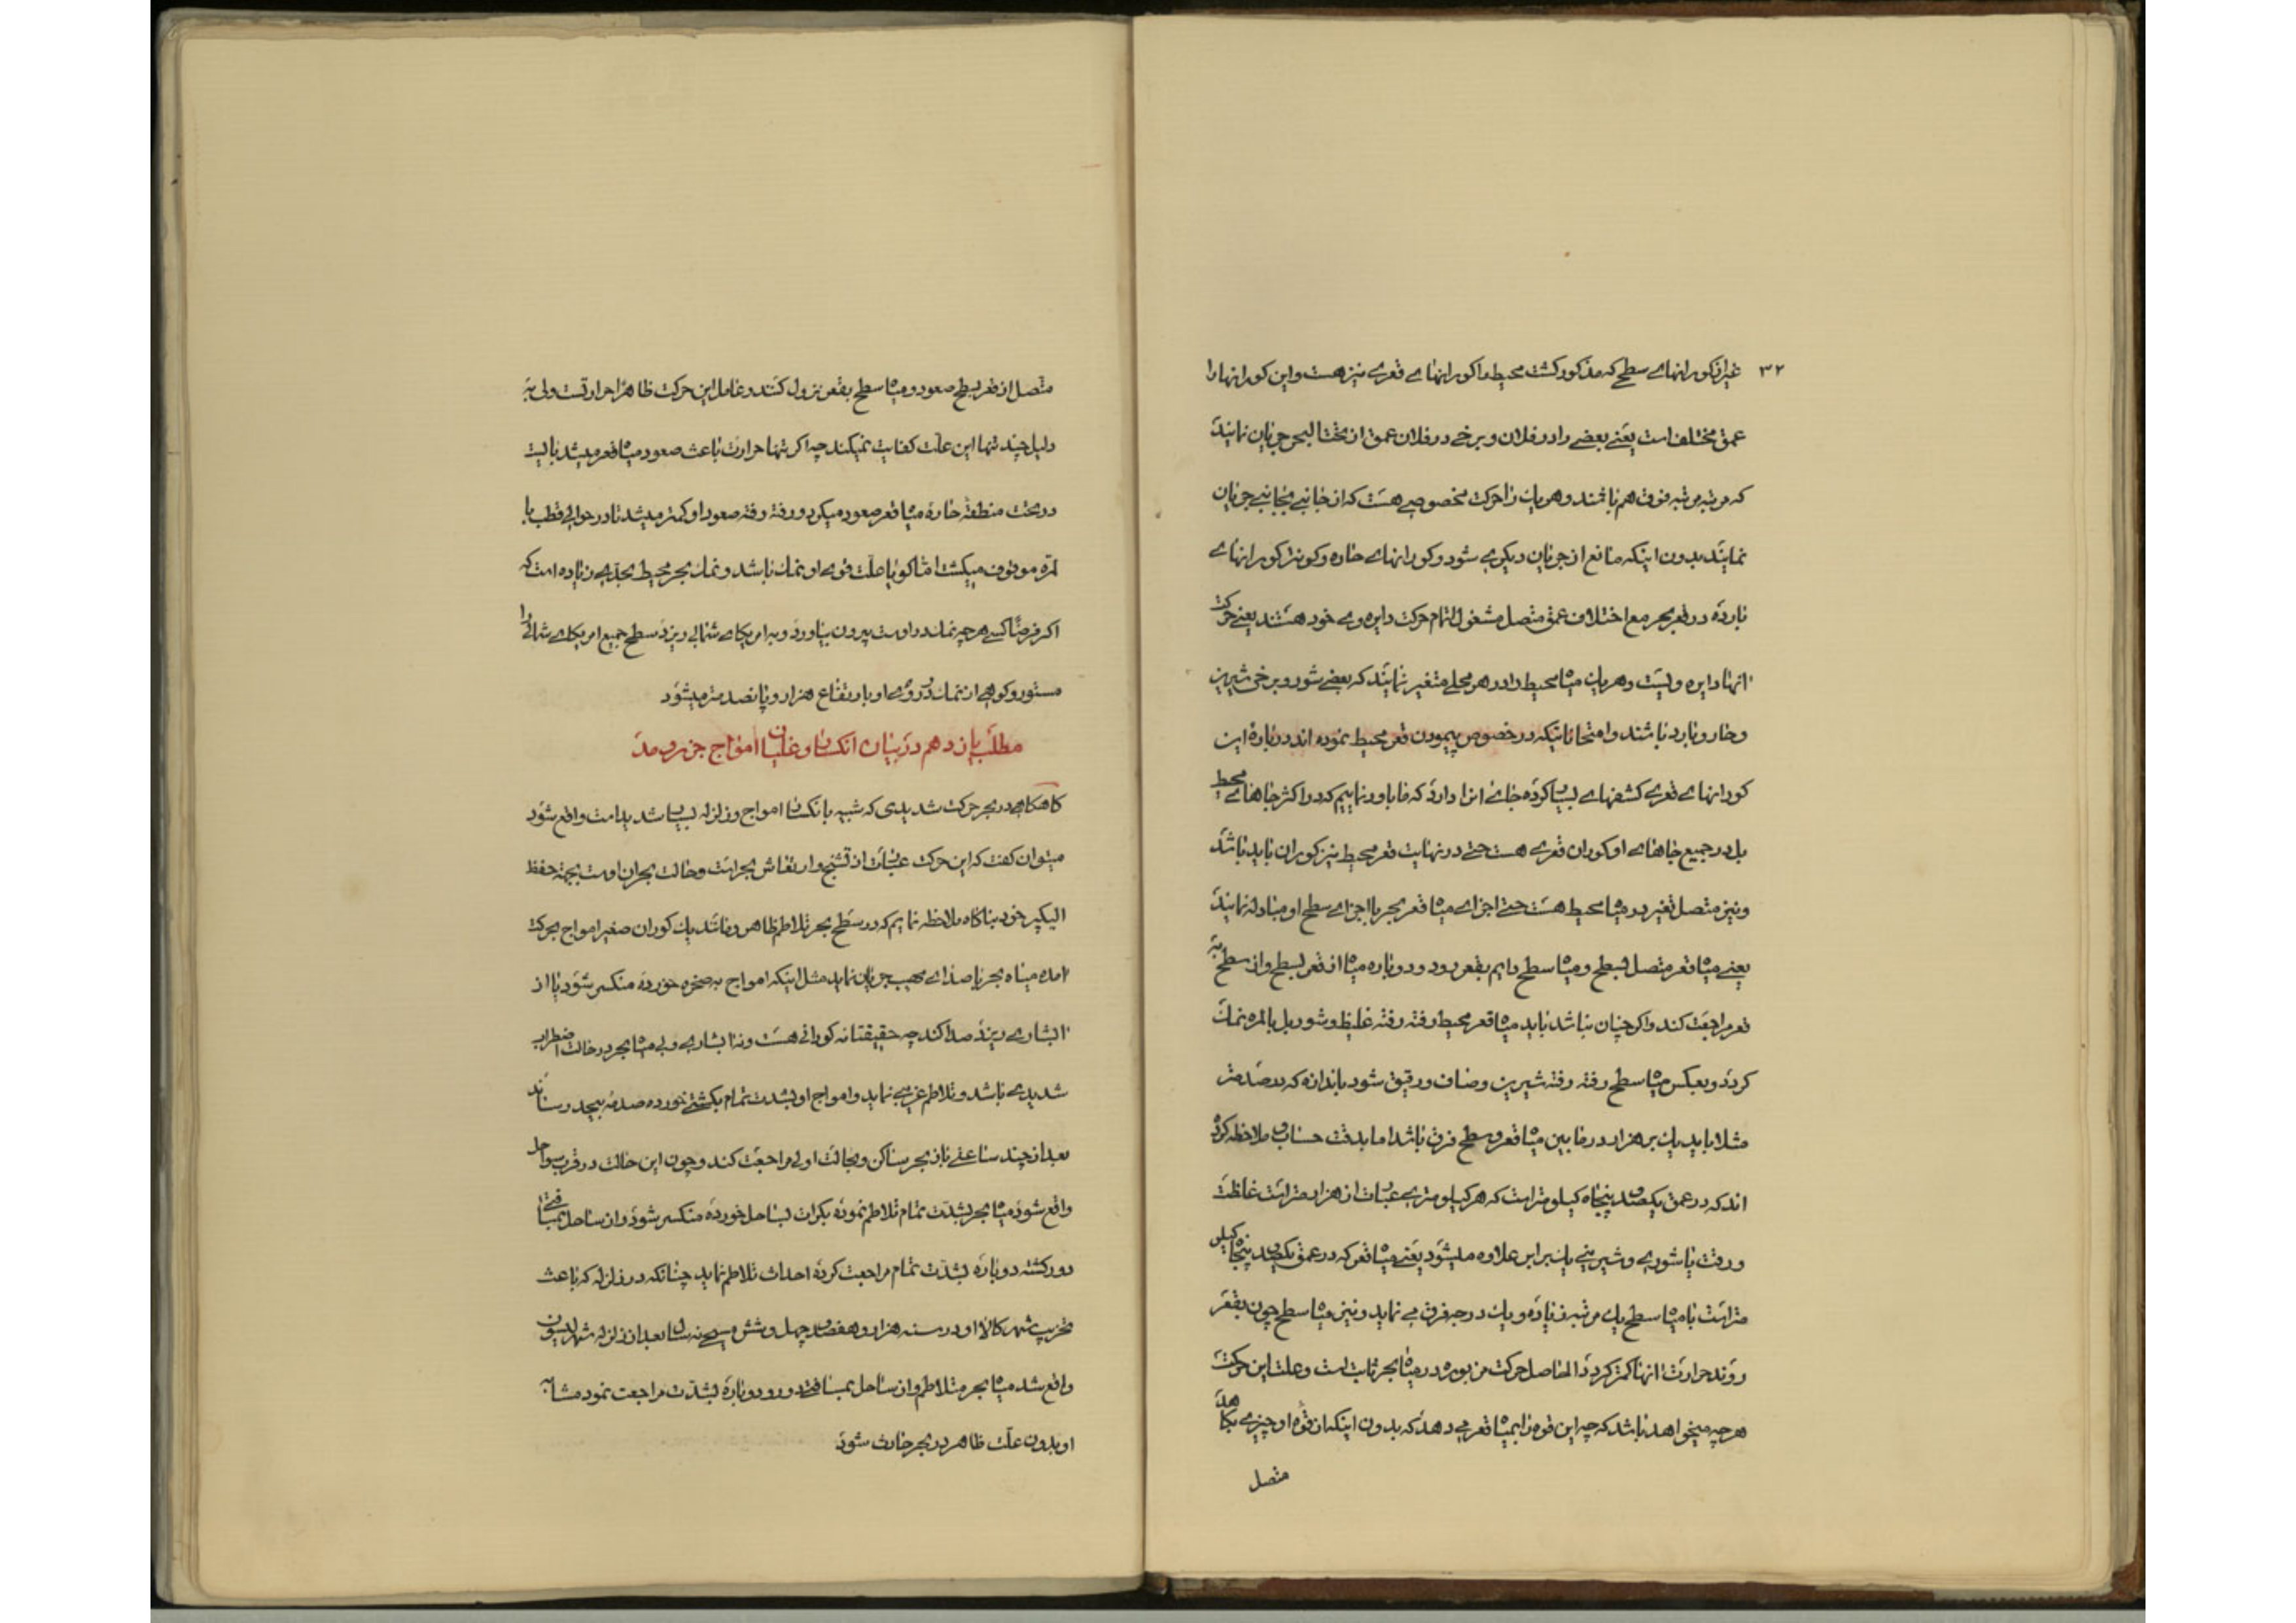 ۳۲
غیر از کورانهاے سطح که مذکور کشت محیط را کورانهاے قعرے نیز هست و این کورانها را
عمق مختلف است یعنے بعضے را در فلان و برخے در فلان عمق از تحت البحر جریان نمایند
که مرتبه مرتبه فوق هم باشند و هر یک را حرکت مخصوصے هست که از جانبے بجانبے جریان
نمایند بدون اینکه مانع از جریان دیکرے شود و کورانهاے حاره و کونتر کورانهاے
بارده در قعر بحر مع اختلاف عمق متصل مشغول اتمام حرکت دایره وے خود هستند یعنے حرکت
انها دایره ویست و هر یک میاه محیط را در هر محلے متغیر نمایند که بعضے شور و برخی شیرین
و حار و بارد باشند و امتحاناتیکه در خصوص پیمودن قعر محیط نموده اند در بارهٔ این
کورانهاے قعرے کشفهاے بسیار کرده جاے انرا دارد که ما باور نماییم که در اکثر جاهاے محیط
بل در جمیع جاهاے او کوران قعرے هست حتے در نهایت قعر محیط نیز کوران باید باشد
و نیز متصل تغیر در میاه محیط هست حتے اجزاے میاه قعر بحر با اجزاے سطح او مبادله نمایند
یعنے میاه قعر متصل بسطح و میاه سطح دایم بقعر رود و دوباره میاه از قعر بسطح و از سطح به
قعر مراجعت کند و اکر چنان نباشد باید میاه قعر محیط رفته رفته غلیظ و شور بل بالمره نمک
کردد و بعکس میاه سطح رفته رفته شیرین و صاف و رقیق شود باندازه که در صد متر
مثلا باید یک بر هزار در مابین میاه قعر و سطح فرق باشد اما بدقت حساب و ملاحظه کرده
اند که در عمق یکصد و پنجاه کیلومتر است که هر کیلومترے عبارت از هزار متر است غلظت
و رقت یا شورے و شیرینے یک برابر علاوه میشود یعنے میاه قعر که در عمق یکصد و پنجاه کیلو
متر است با میاه سطح یک مرتبه زیاده و یک درجه فرق مے نماید و نیز میاه سطح چون بقعر
روند حرارت انها کمتر کردد الحاصل حرکت مزبوره در میاه بحر ثابت است و علت این حرکت
هرچه میخواهد باشد که چه این قوه را بمیاه قعر مے دهد که بدون اینکه از قوه او چیزے بکاهد
متصل
متصل از قعر بسطح صعود و میاه سطح بقعر نزول کنند و عامل این حرکت ظاهرا حرارتست ولی به
دلیل چند تنها این علت کفایت نمیکند چه اکر تنها حرارت باعث صعود میاه قعر میشد بایست
در تحت منطقه حاره میاه قعر صعود میکرد و رفته رفته صعود او کمتر میشد تا در حوالی قطب با
لمره موقوف میکشت اما کویا علت قوے او نمک باشد و نمک بحر محیط بحدے زیاده است که
اکر فرضا کسے هرچه نمک در اوست بیرون بیاورد و به امریکاے شمالی ریزد سطح جمیع امریکاے شمالی را
مستور و کوهے از نمک در روے او بارتفاع هزار و پانصد متر میشود
مطلب یازدهم در بیان انکسار و غلیان امواج جزر و مد
کاهکاهے در بحر حرکت شدیدی که شبیه بانکسار امواج و زلزله بسیار شدید است واقع شود
میتوان کفت که این حرکت عبارت از تشنج و ارتعاش بحر است و حالت بحران اوست بجهة حفظ
الیکپر خود بناکاه ملاحظه نمایم که در سطح بحر تلاطم ظاهر و مانند یک کوران صغیر امواج بحرکت
امده میاه بحر با صداے مهیب جریان نماید مثل اینکه امواج به صخره خورده منکسر شود یا از
ابشارے ریزد صدا کند چه حقیقتا نه کورانی هست و نه ابشارے ولی میاه بحر در حالت اضطراب
شدیدے باشد و تلاطم غریبے نماید و امواج او بشدت تمام بکشتے خورده صدمهٔ بیحد رساند
بعد از چند ساعتے باز بحر ساکن و بحالت اولی مراجعت کند و چون این حالت در قرب سواحل
واقع شود میاه بحر بشدت تمام تلاطم نموده بکرات بساحل خورده منکسر شود و از ساحل بمسافتے
دور کشته دوباره بشدت تمام مراجعت کرده احداث تلاطم نماید چنانکه در زلزله که باعث
تخریب شهر کالااو در سنه هزار و هفصد و چهل و شش مسیحے نه سال بعد از زلزله شهر لیسبون
واقع شد میاه بحر متلاطم و از ساحل بمسافتے دور و دوباره بشدت مراجعت نمود مشابه
او بدون علت ظاهر در بحر حادث شود